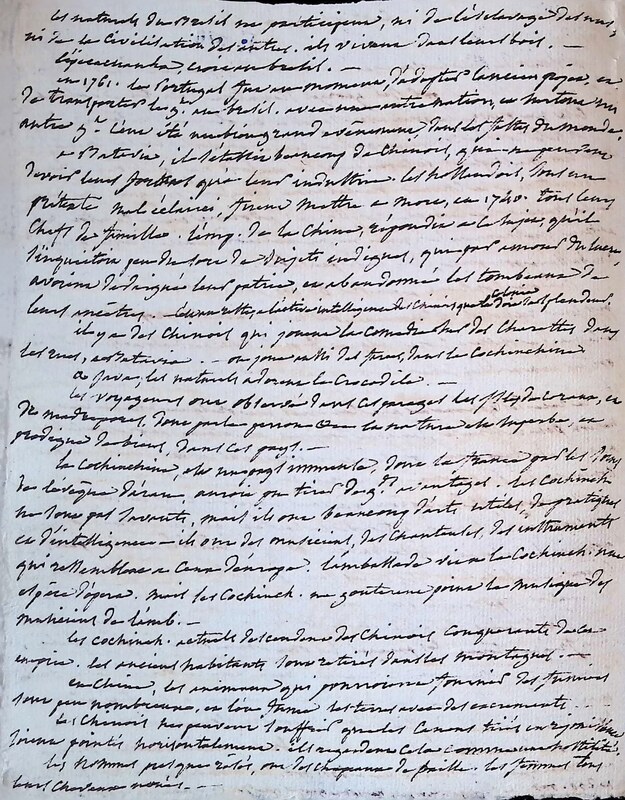 les naturels du Bresil ne participent, ni de l'esclavage des uns,
ni de la civilisation des autres. ils vivent dans leurs bois. —
l'ipecacuanha, croit au bresil. —
en 1761. le Portugal fut au moment, d'adopter l'ancien projet, en
de transporter le au bresil. avec une autre nation, en
autre l'eut été un beau grand evénement, dans les fastes du monde.
a Batavia, il s'établit beaucoup de Chinois, qui ne peuvent
devoir leurs fortunes qu'a leur industrie. les hollandois, sous un
prétexte mal éclairci, firent mettre a mort, en 1740. tous leurs
Chefs de famille. l'emp. de la Chine, répondit a le sujet, qu'il
s'inquietoit peu du sort de sujets indignes, qui par amour du lucre
avoient dedaigné leur patrie, en abandonné les tombeaux de
leurs ancêtres. — active intelligence des Chinois que la colonie doit sa splendeur.
il y a des Chinois qui jouent la comedie sur des Charettes dans
les rues, a Batavia. — on joue aussi des farces, dans la Cochinchine
a Java, les naturels adorent le Crocodile. —
les voyageurs ont observé dans ces parages les de coraux, en
de madrepores, dont parle peron la nature est superbe, en
prodigue de biens, dans ces pays. —
la cochinchine, est un pays immense, dont la france par les soins
de l'évêque d'adran, auroit pu tirer de gds avantages. les Cochinch.
ne sont pas savants, mais ils ont beaucoup d'arts utiles, de pratiques
et d'intelligence — ils ont des musiciens, des chanteuses, des instruments
qui ressemblent a ceux d'europe. l'ambassade vit a la Cochinch. une
espèce d'opera. mais les Cochinch. ne gouterent point la musique des
musiciens de l'amb. —
les cochinch. actuels descendent des Chinois conquerants de cet
empire. les anciens habitants, sont retirés dans les montagnes. —
en Chine, les animaux qui pourroient fournir des fumiers
sont peu nombreux, en l'on fume les terres avec des excrements. ...
les Chinois ne peuvent souffrir que les canons tirés en réjouissance
soient pointés horisontalement. ils regardent cela comme une hostilité.
les hommes presque rasés, ont des chapeaux de paille. les femmes tous
leurs cheveux noués. —